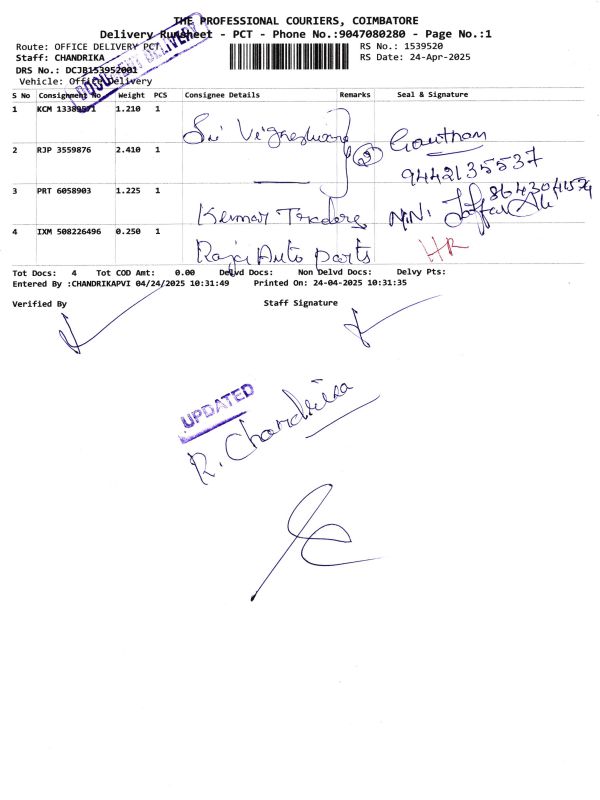 THE PROFESSIONAL COURIERS, COIMBATORE
Delivery Runsheet - PCT - Phone No.:9047080280 - Page No.:1
Route: OFFICE DELIVERY PCT. RS No.: 1539520
Staff: CHANDRIKA RS Date: 24-Apr-2025
DRS No.: DCJB153952001
Vehicle: Office Delivery
DOCUMENT DELIVERY
S No Consignment No Weight PCS Consignee Details Remarks Seal & Signature
1 KCM 1.210 1 Sri Vignesh Gautham
2 RJP 3559876 2.410 1 9442135537
3 PRT 6058903 1.225 1 Kumar Traders Jaffar Ali
4 IXM 508226496 0.250 1 Raja Auto parts HR
Tot Docs: 4 Tot COD Amt: 0.00 Delvd Docs: Non Delvd Docs: Delvy Pts:
Entered By :CHANDRIKAPVI 04/24/2025 10:31:49 Printed On: 24-04-2025 10:31:35
Verified By Staff Signature
UPDATED
R. Chandrika